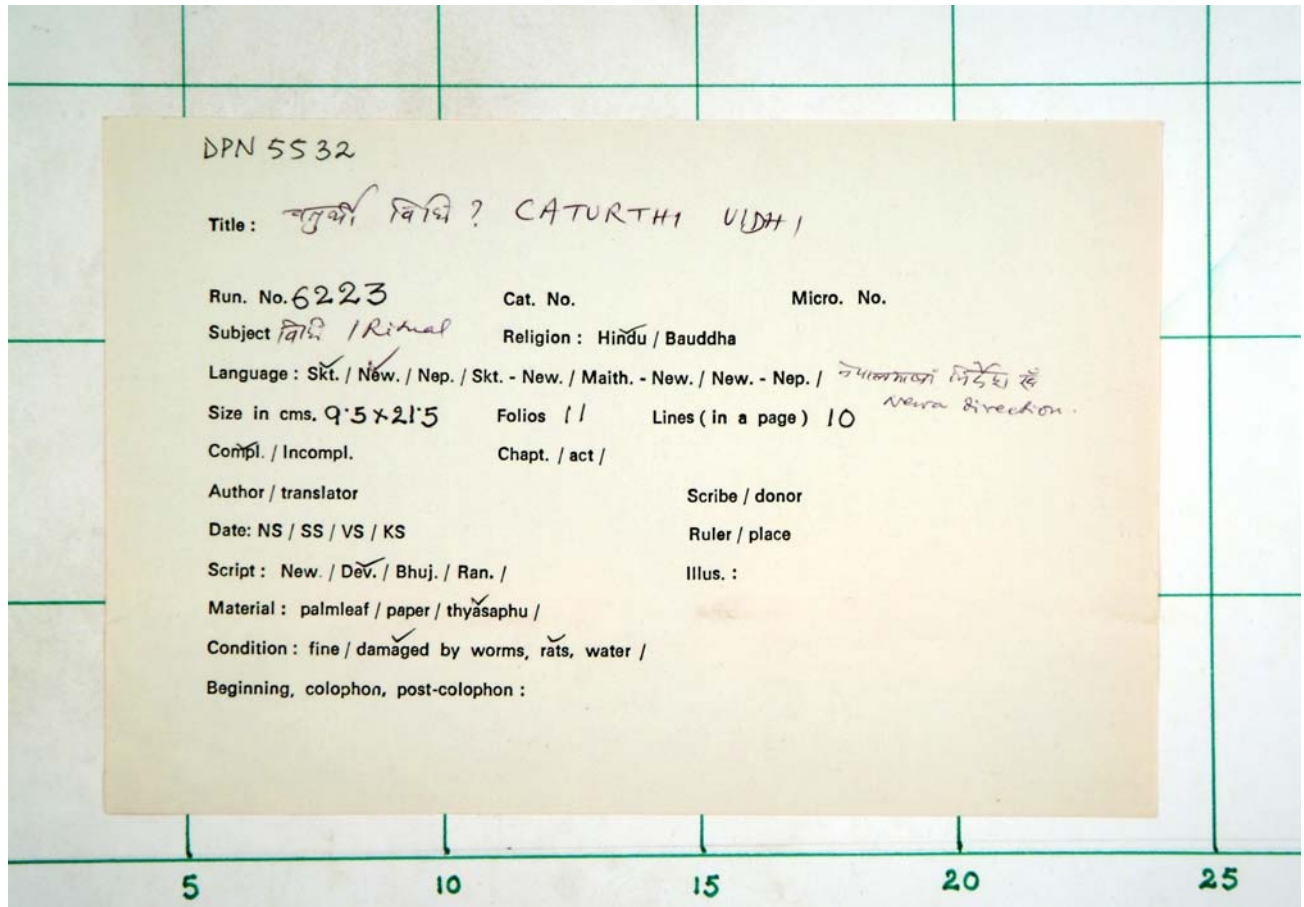 DPN 5532
Title : चतुर्थी विधि ? CATURTHI VIDHI
Run. No. 6223 Cat. No. Micro. No.
Subject विधि / Ritual Religion : Hindu / Bauddha
Language : Skt. / New. / Nep. / Skt. - New. / Maith. - New. / New. - Nep. / नेपालभाषां निर्देश
Newa direction.
Size in cms. 9.5 × 21.5 Folios 11 Lines ( in a page ) 10
Compl. / Incompl. Chapt. / act /
Author / translator Scribe / donor
Date: NS / SS / VS / KS Ruler / place
Script : New. / Dev. / Bhuj. / Ran. / Illus. :
Material : palmleaf / paper / thyasaphu /
Condition : fine / damaged by worms, rats, water /
Beginning, colophon, post-colophon :
5 10 15 20 25